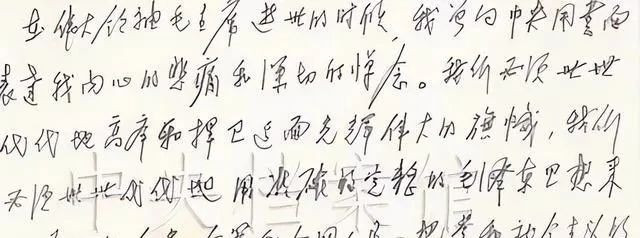 在伟大领袖毛主席逝世的时候，我曾向中央用書面
表达我内心的悲痛和深切的悼念。我们必须世世
代代地高举和捍卫这面光辉伟大的旗帜，我们
必须世世代代地用准确的完整的毛泽东思想来
把党和
中央档案馆